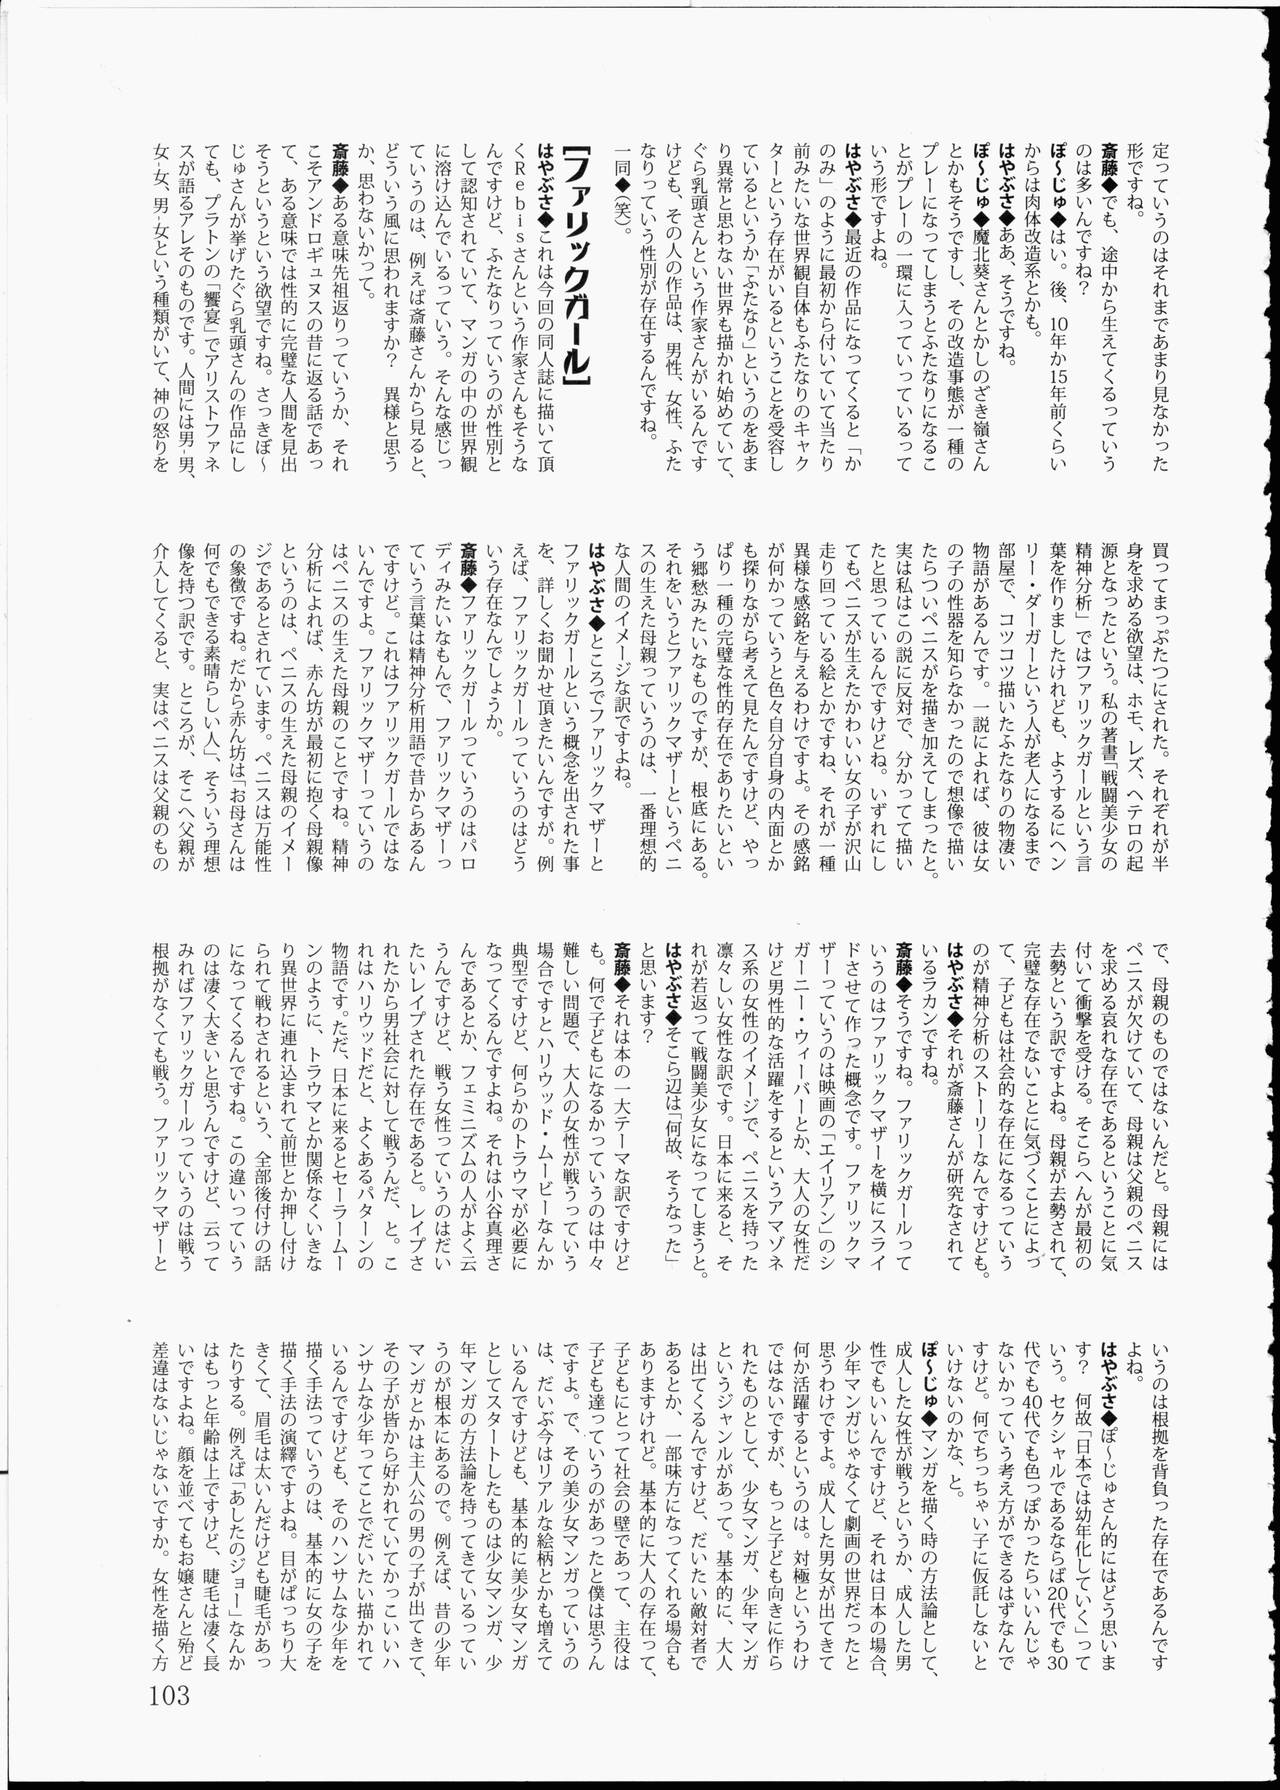 定っていうのはそれまであまり見なかった
形ですね。
斎藤◆でも、途中から生えてくるっていう
のは多いんですね？
ぽ～じゅ◆はい。後、10年か15年前くらい
からは肉体改造系とかも。
はやぶさ◆ああ、そうですね。
ぽ～じゅ◆魔北葵さんとかしのざき嶺さん
とかもそうですし、その改造事態が一種の
プレーになってしまうとふたなりになるこ
とがプレーの一環に入っていっているって
いう形ですよね。
はやぶさ◆最近の作品になってくると「か
のみ」のように最初から付いていて当たり
前みたいな世界観自体もふたなりのキャク
ターという存在がいるということを受容し
ているというか「ふたなり」というのをあま
り異常と思わない世界も描かれ始めていて、
ぐら乳頭さんという作家さんがいるんです
けども、その人の作品は、男性、女性、ふた
なりっていう性別が存在するんですね。
一同◆（笑）。
【ファリックガール】
はやぶさ◆これは今回の同人誌に描いて頂
くRebisさんという作家さんもそうな
んですけど、ふたなりっていうのが性別と
して認知されていて、マンガの中の世界観
に溶け込んでいるっていう。そんな感じっ
ていうのは、例えば斎藤さんから見ると、
どういう風に思われますか？　異様と思う
か、思わないかって。
斎藤◆ある意味先祖返りっていうか、それ
こそアンドロギュヌスの昔に返る話であっ
て、ある意味では性的に完璧な人間を見出
そうというという欲望ですね。さっきぽ～
じゅさんが挙げたぐら乳頭さんの作品にし
ても、プラトンの「饗宴」でアリストファネ
スが語るアレそのものです。人間には男-男、
女-女、男-女という種類がいて、神の怒りを
買ってまっぷたつにされた。それぞれが半
身を求める欲望は、ホモ、レズ、ヘテロの起
源となったという。私の著書「戦闘美少女の
精神分析」ではファリックガールという言
葉を作りましたけれども、ようするにヘン
リー・ダーガーという人が老人になるまで
部屋で、コツコツ描いたふたなりの物凄い
物語があるんです。一説によれば、彼は女
の子の性器を知らなかったので想像で描い
たらついペニスがを描き加えてしまったと。
実は私はこの説に反対で、分かってて描い
たと思っているんですけどね。いずれにし
てもペニスが生えたかわいい女の子が沢山
走り回っている絵とかですね、それが一種
異様な感銘を与えるわけですよ。その感銘
が何かっていうと色々自分自身の内面とか
も探りながら考えて見たんですけど、やっ
ぱり一種の完璧な性的存在でありたいとい
う郷愁みたいなものですが、根底にある。
それをいうとファリックマザーというペニ
スの生えた母親っていうのは、一番理想的
な人間のイメージな訳ですよね。
はやぶさ◆ところでファリックマザーと
ファリックガールという概念を出された事
を、詳しくお聞かせ頂きたいんですが。例
えば、ファリックガールっていうのはどう
いう存在なんでしょうか。
斎藤◆ファリックガールっていうのはパロ
ディみたいなもんで、ファリックマザーっ
ていう言葉は精神分析用語で昔からあるん
ですけど。これはファリックガールではな
いんですよ。ファリックマザーっていうの
はペニスの生えた母親のことですね。精神
分析によれば、赤ん坊が最初に抱く母親像
というのは、ペニスの生えた母親のイメー
ジであるとされています。ペニスは万能性
の象徴ですね。だから赤ん坊は「お母さんは
何でもできる素晴らしい人」、そういう理想
像を持つ訳です。ところが、そこへ父親が
介入してくると、実はペニスは父親のもの
で、母親のものではないんだと。母親には
ペニスが欠けていて、母親は父親のペニス
を求める哀れな存在であるということに気
付いて衝撃を受ける。そこらへんが最初の
去勢という訳ですよね。母親が去勢されて、
完璧な存在でないことに気づくことによっ
て、子どもは社会的な存在になるっていう
のが精神分析のストーリーなんですけども。
はやぶさ◆それが斎藤さんが研究なされて
いるラカンですね。
斎藤◆そうですね。ファリックガールって
いうのはファリックマザーを横にスライ
ドさせて作った概念です。ファリックマ
ザーっていうのは映画の「エイリアン」のシ
ガーニー・ウィーバーとか、大人の女性だ
けど男性的な活躍をするというアマゾネ
ス系の女性のイメージで、ペニスを持った
凛々しい女性な訳です。日本に来ると、そ
れが若返って戦闘美少女になってしまうと。
はやぶさ◆そこら辺は「何故、そうなった」
と思います？
斎藤◆それは本の一大テーマな訳ですけど
も。何で子どもになるかっていうのは中々
難しい問題で、大人の女性が戦うっていう
場合ですとハリウッド・ムービーなんか
典型ですけど、何らかのトラウマが必要に
なってくるんですよね。それは小谷真理さ
んであるとか、フェミニズムの人がよく云
うんですけど、戦う女性っていうのはだい
たいレイプされた存在であると。レイプさ
れたから男社会に対して戦うんだ、と。こ
れはハリウッドだと、よくあるパターンの
物語です。ただ、日本に来るとセーラームー
ンのように、トラウマとか関係なくいきな
り異世界に連れ込まれて前世とか押し付け
られて戦わされるという、全部後付けの話
になってくるんですね。この違いっていう
のは凄く大きいと思うんですけど、云って
みればファリックガールっていうのは戦う
根拠がなくても戦う。ファリックマザーと
いうのは根拠を背負った存在であるんです
よね。
はやぶさ◆ぽ～じゅさん的にはどう思いま
す？　何故「日本では幼年化していく」って
いう。セクシャルであるならば20代でも30
代でも40代でも色っぽかったらいいんじゃ
ないかっていう考え方ができるはずなんで
すけど。何でちっちゃい子に仮託しないと
いけないのかな、と。
ぽ～じゅ◆マンガを描く時の方法論として、
成人した女性が戦うというか、成人した男
性でもいいんですけど、それは日本の場合、
少年マンガじゃなくて劇画の世界だったと
思うわけですよ。成人した男女が出てきて
何か活躍するというのは。対極というわけ
ではないですが、もっと子ども向きに作ら
れたものとして、少女マンガ、少年マンガ
というジャンルがあって。基本的に、大人
は出てくるんですけど、だいたい敵対者で
あるとか、一部味方になってくれる場合も
ありますけれど。基本的に大人の存在って、
子どもにとって社会の壁であって、主役は
子ども達っていうのがあったと僕は思うん
ですよ。で、その美少女マンガっていうの
は、だいぶ今はリアルな絵柄とかも増えて
いるんですけども、基本的に美少女マンガ
としてスタートしたものは少女マンガ、少
年マンガの方法論を持ってきているってい
うのが根本にあるので。例えば、昔の少年
マンガとかは主人公の男の子が出てきて、
その子が皆から好かれていてかっこいいハ
ンサムな少年ってことでだいたい描かれて
いるんですけども、そのハンサムな少年を
描く手法っていうのは、基本的に女の子を
描く手法の演繹ですよね。目がぱっちり大
きくて、眉毛は太いんだけども睫毛があっ
たりする。例えば「あしたのジョー」なんか
はもっと年齢は上ですけど、睫毛は凄く長
いですよね。顔を並べてもお嬢さんと殆ど
差違はないじゃないですか。女性を描く方
103